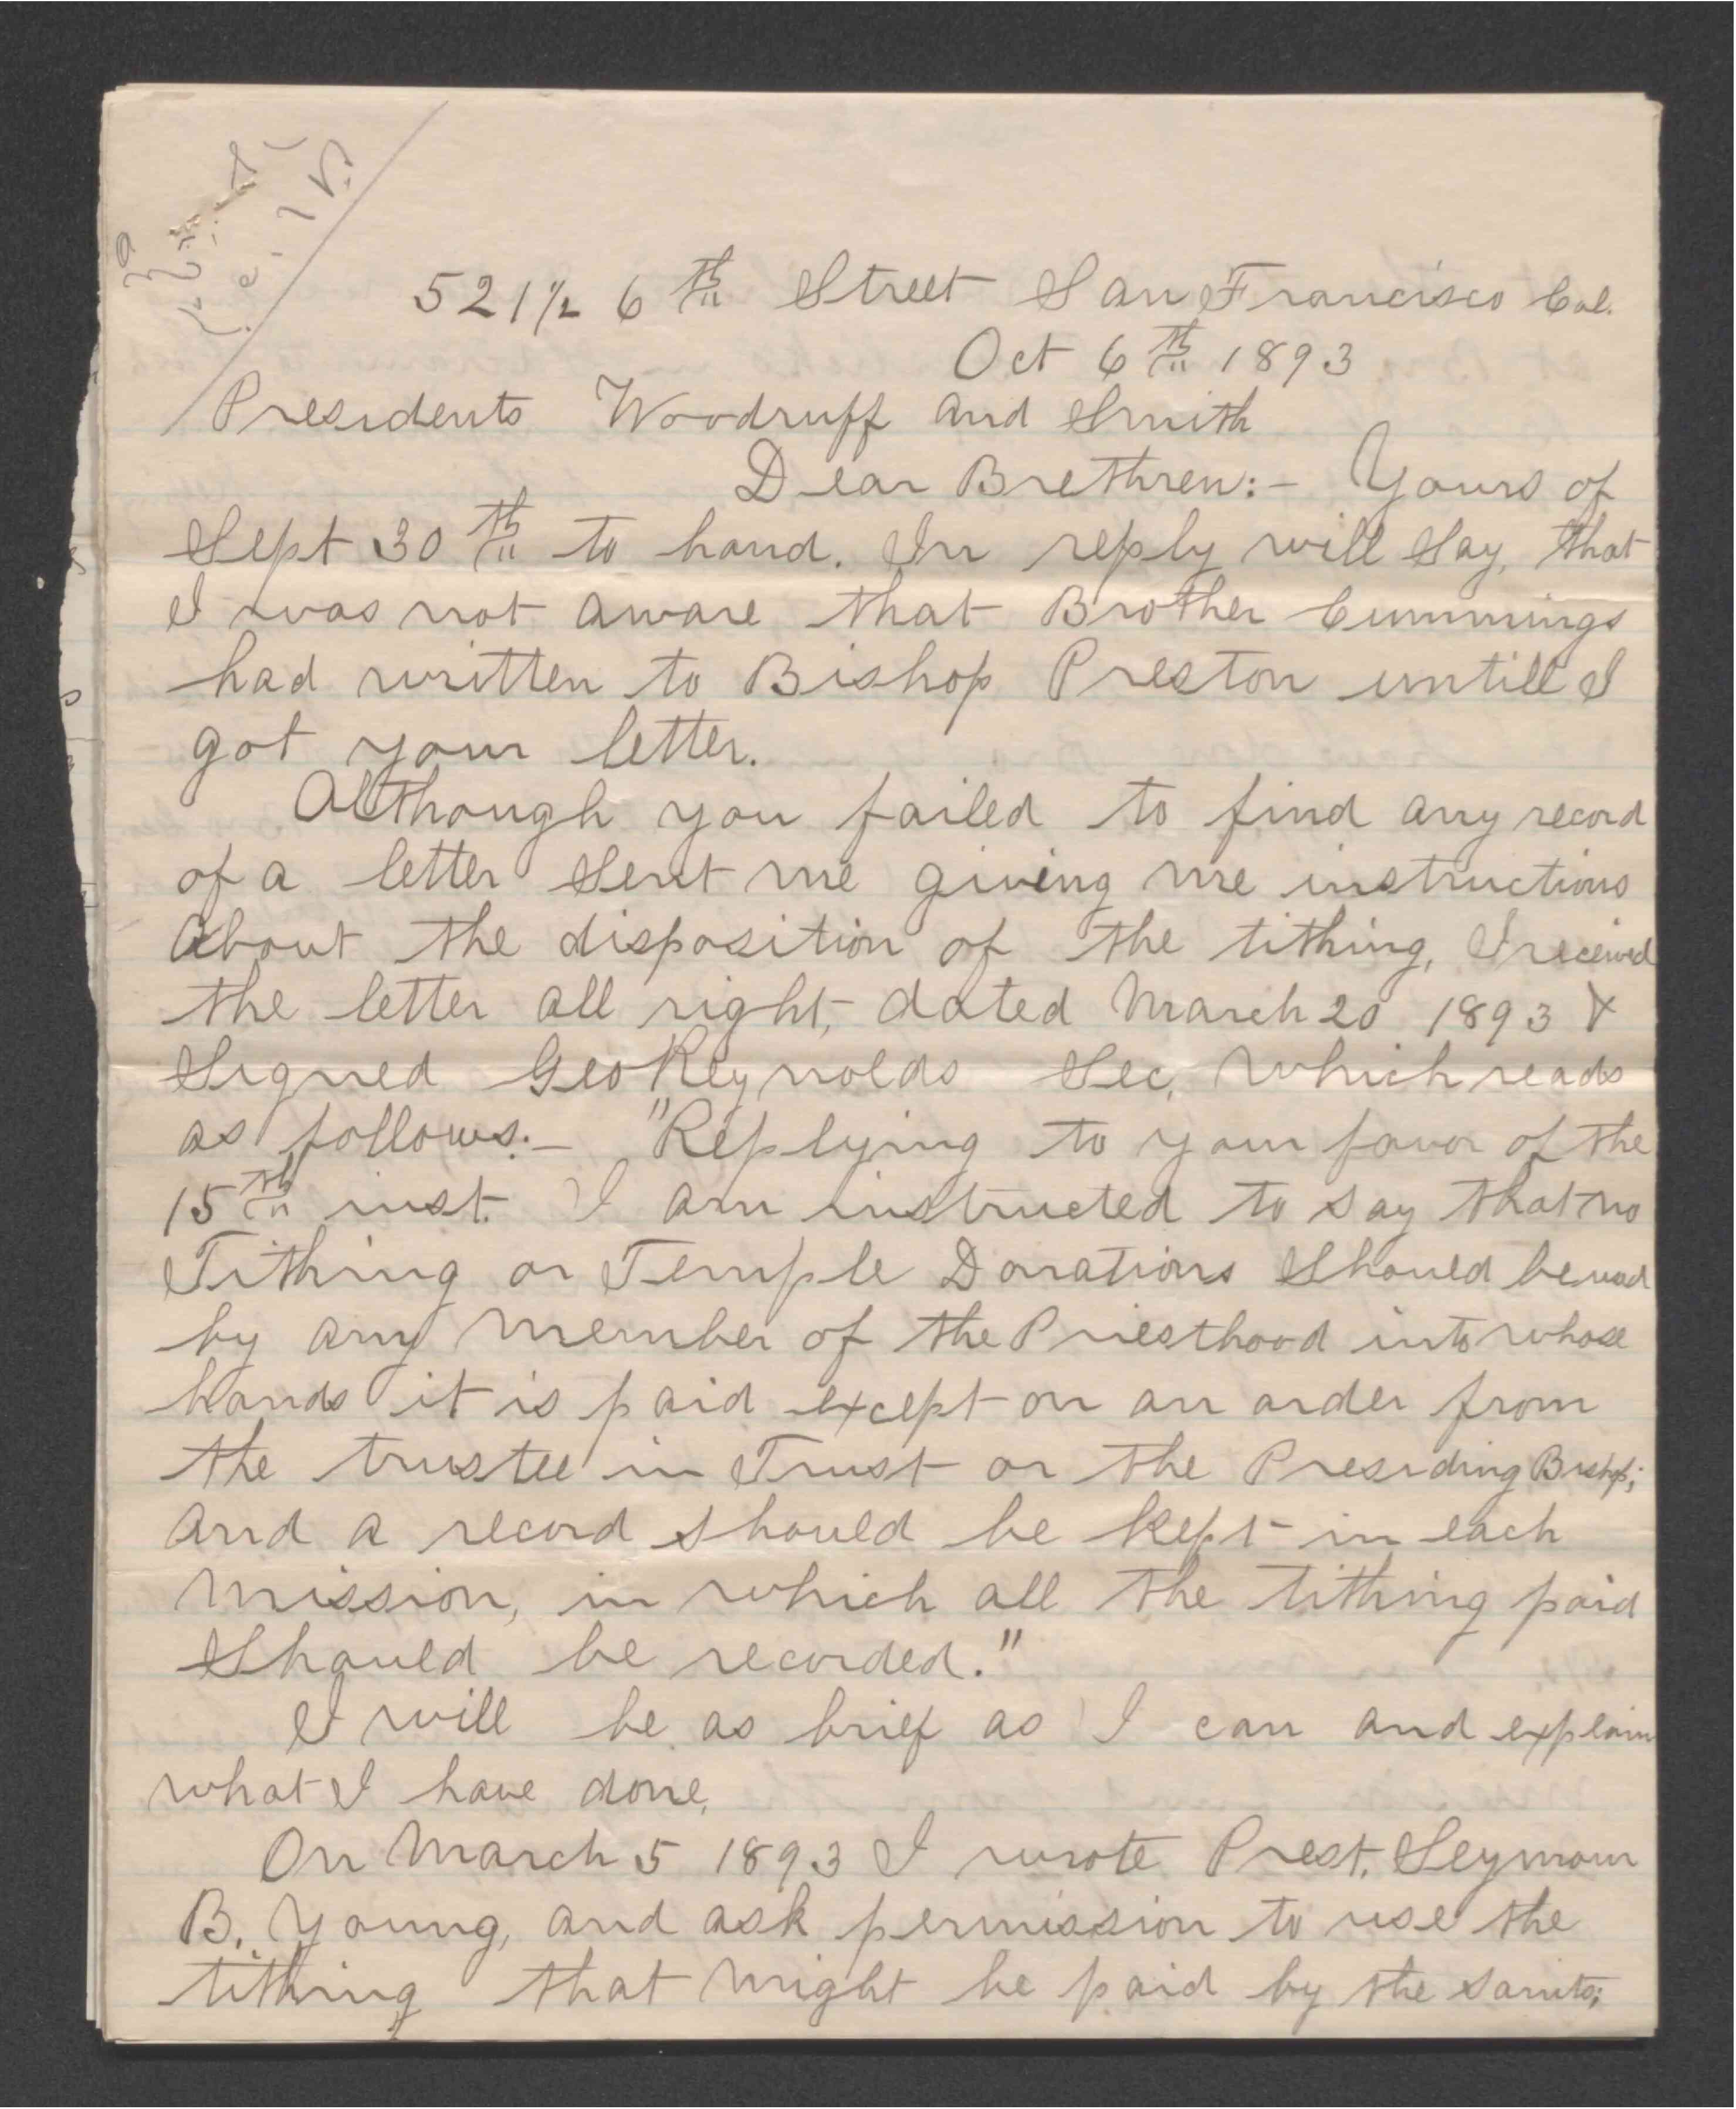 521½ 6th Street San Francisco Cal.
Oct 6th 1893
Presidents Woodruff and Smith
Dear Brethren:- Yours of
Sept 30th to hand. In reply will say, that
I was not aware that Brother Cummings
had written to Bishop Preston untill I
got your letter.
Although you failed to find any record
of a letter sent me giving me instructions
about the disposition of the tithing, I received
the letter all right, dated March 20 1893 &
signed Geo Reynolds Sec, which reads
as follows:- "Replying to your favor of the
15th inst. I am instructed to say that no
Tithing or Temple Donations should be used
by any member of the Priesthood into whose
hands it is paid except on an order from
the trustee in Trust or the Presiding Bishop;
and a record should be kept in each
mission, in which all the tithing paid
should be recorded."
I will be as brief as I can and explain
what I have done,
On March 5 1893 I wrote Prest. Seymour
B. Young, and ask permission to use the
tithing that might be paid by the saints;